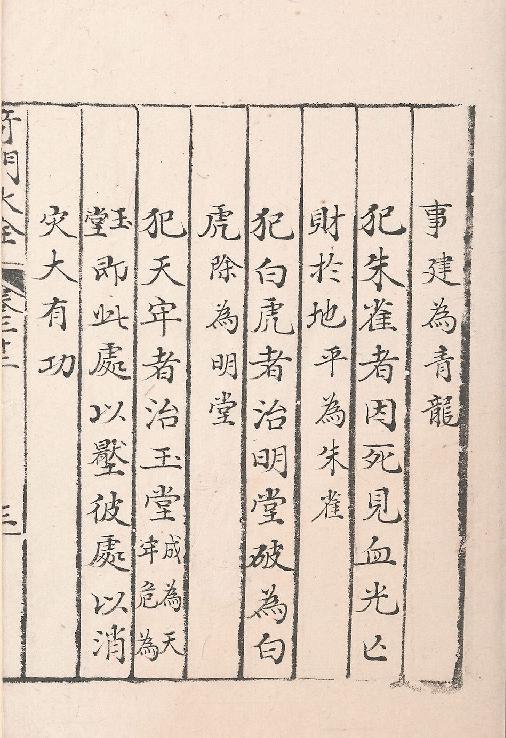 事建為青龍
犯朱雀者因死見血光亡
財於地平為朱雀
犯白虎者治明堂破為白
虎除為明堂
犯天牢者治玉堂成為天牢危為
玉堂即此處以壓彼處以消
灾大有功
奇門大全 卷三十二 三